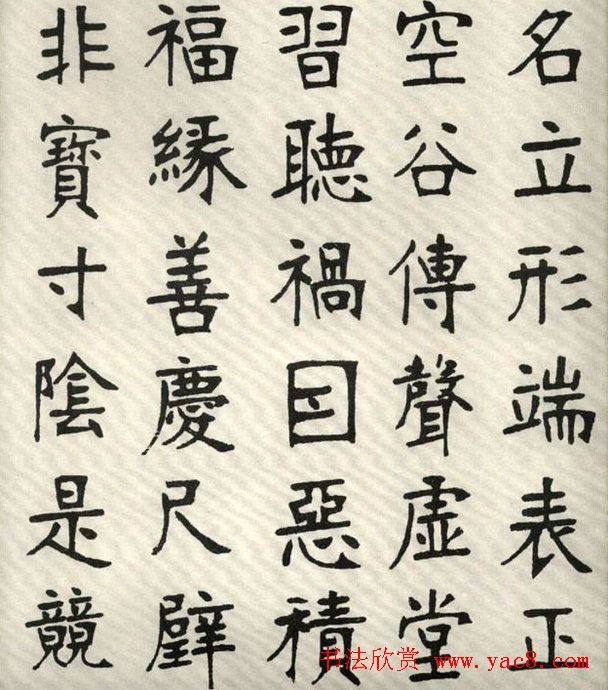 名立形端表正
空谷傳聲虚堂
習聽禍囙惡積
福緣善慶尺璧
非寶寸陰是競
书法欣赏 www.yac8.com